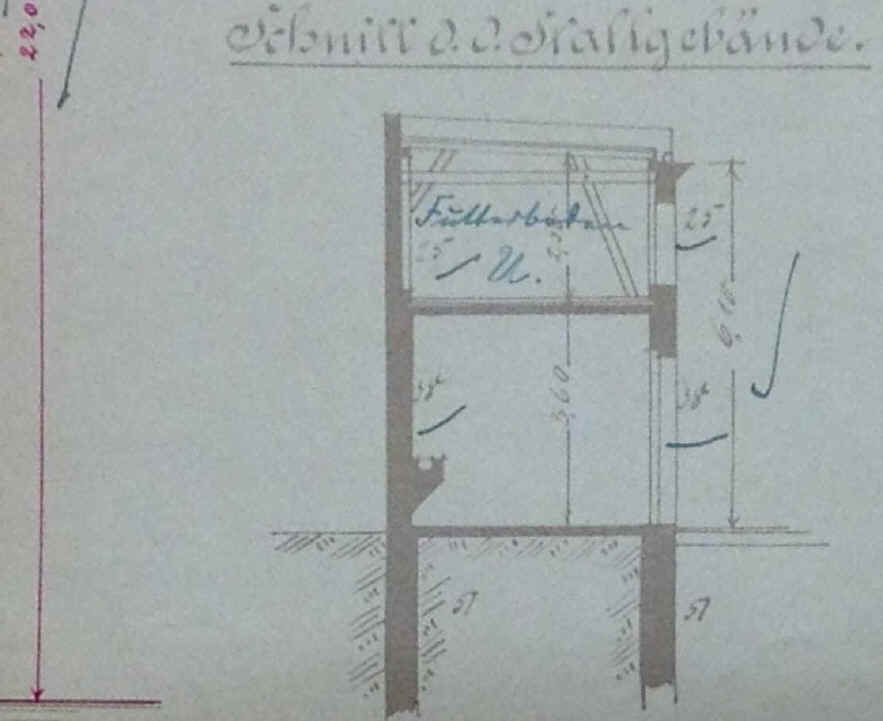 22,0
Schnitt d. d. Stallgebäude.
Futterboden
U.
25
25
2,50
6,10
38
38
3,60
51
51